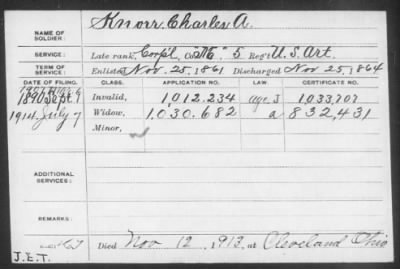 NAME OF SOLDIER: Knorr, Charles A.
SERVICE: Late rank, Corp'l, Co. "M" 5 Reg't U.S. Art.
TERM OF SERVICE: Enlisted Nov. 25, 1861 Discharged Nov. 25, 1864
DATE OF FILING. CLASS. APPLICATION NO. LAW. CERTIFICATE NO.
1890 Sept. 9 Invalid, 1,012.234
1914 July 7 Widow, 1,030.682 a 832,431
Minor,
ADDITIONAL SERVICES:
REMARKS:
Died Nov 12, 1913, at Cleveland Ohio
J.E.T.